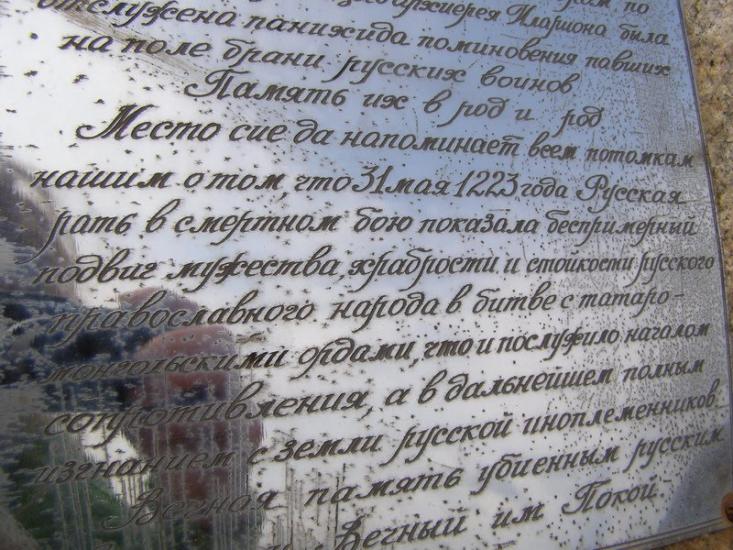 архиерея Илариона была
отслужена панихида поминовения павших
на поле брани русских воинов
Память их в род и род
Место сие да напоминает всем потомкам
нашим о том, что 31 мая 1223 года Русская
рать в смертном бою показала беспримерный
подвиг мужества, храбрости и стойкости русского
православного народа в битве с татаро-
монгольскими ордами, что и послужило началом
сопротивления, а в дальнейшем полным
изгнанием с земли русской иноплеменников.
Вечная память убиенным русским
Вечный им Покой.